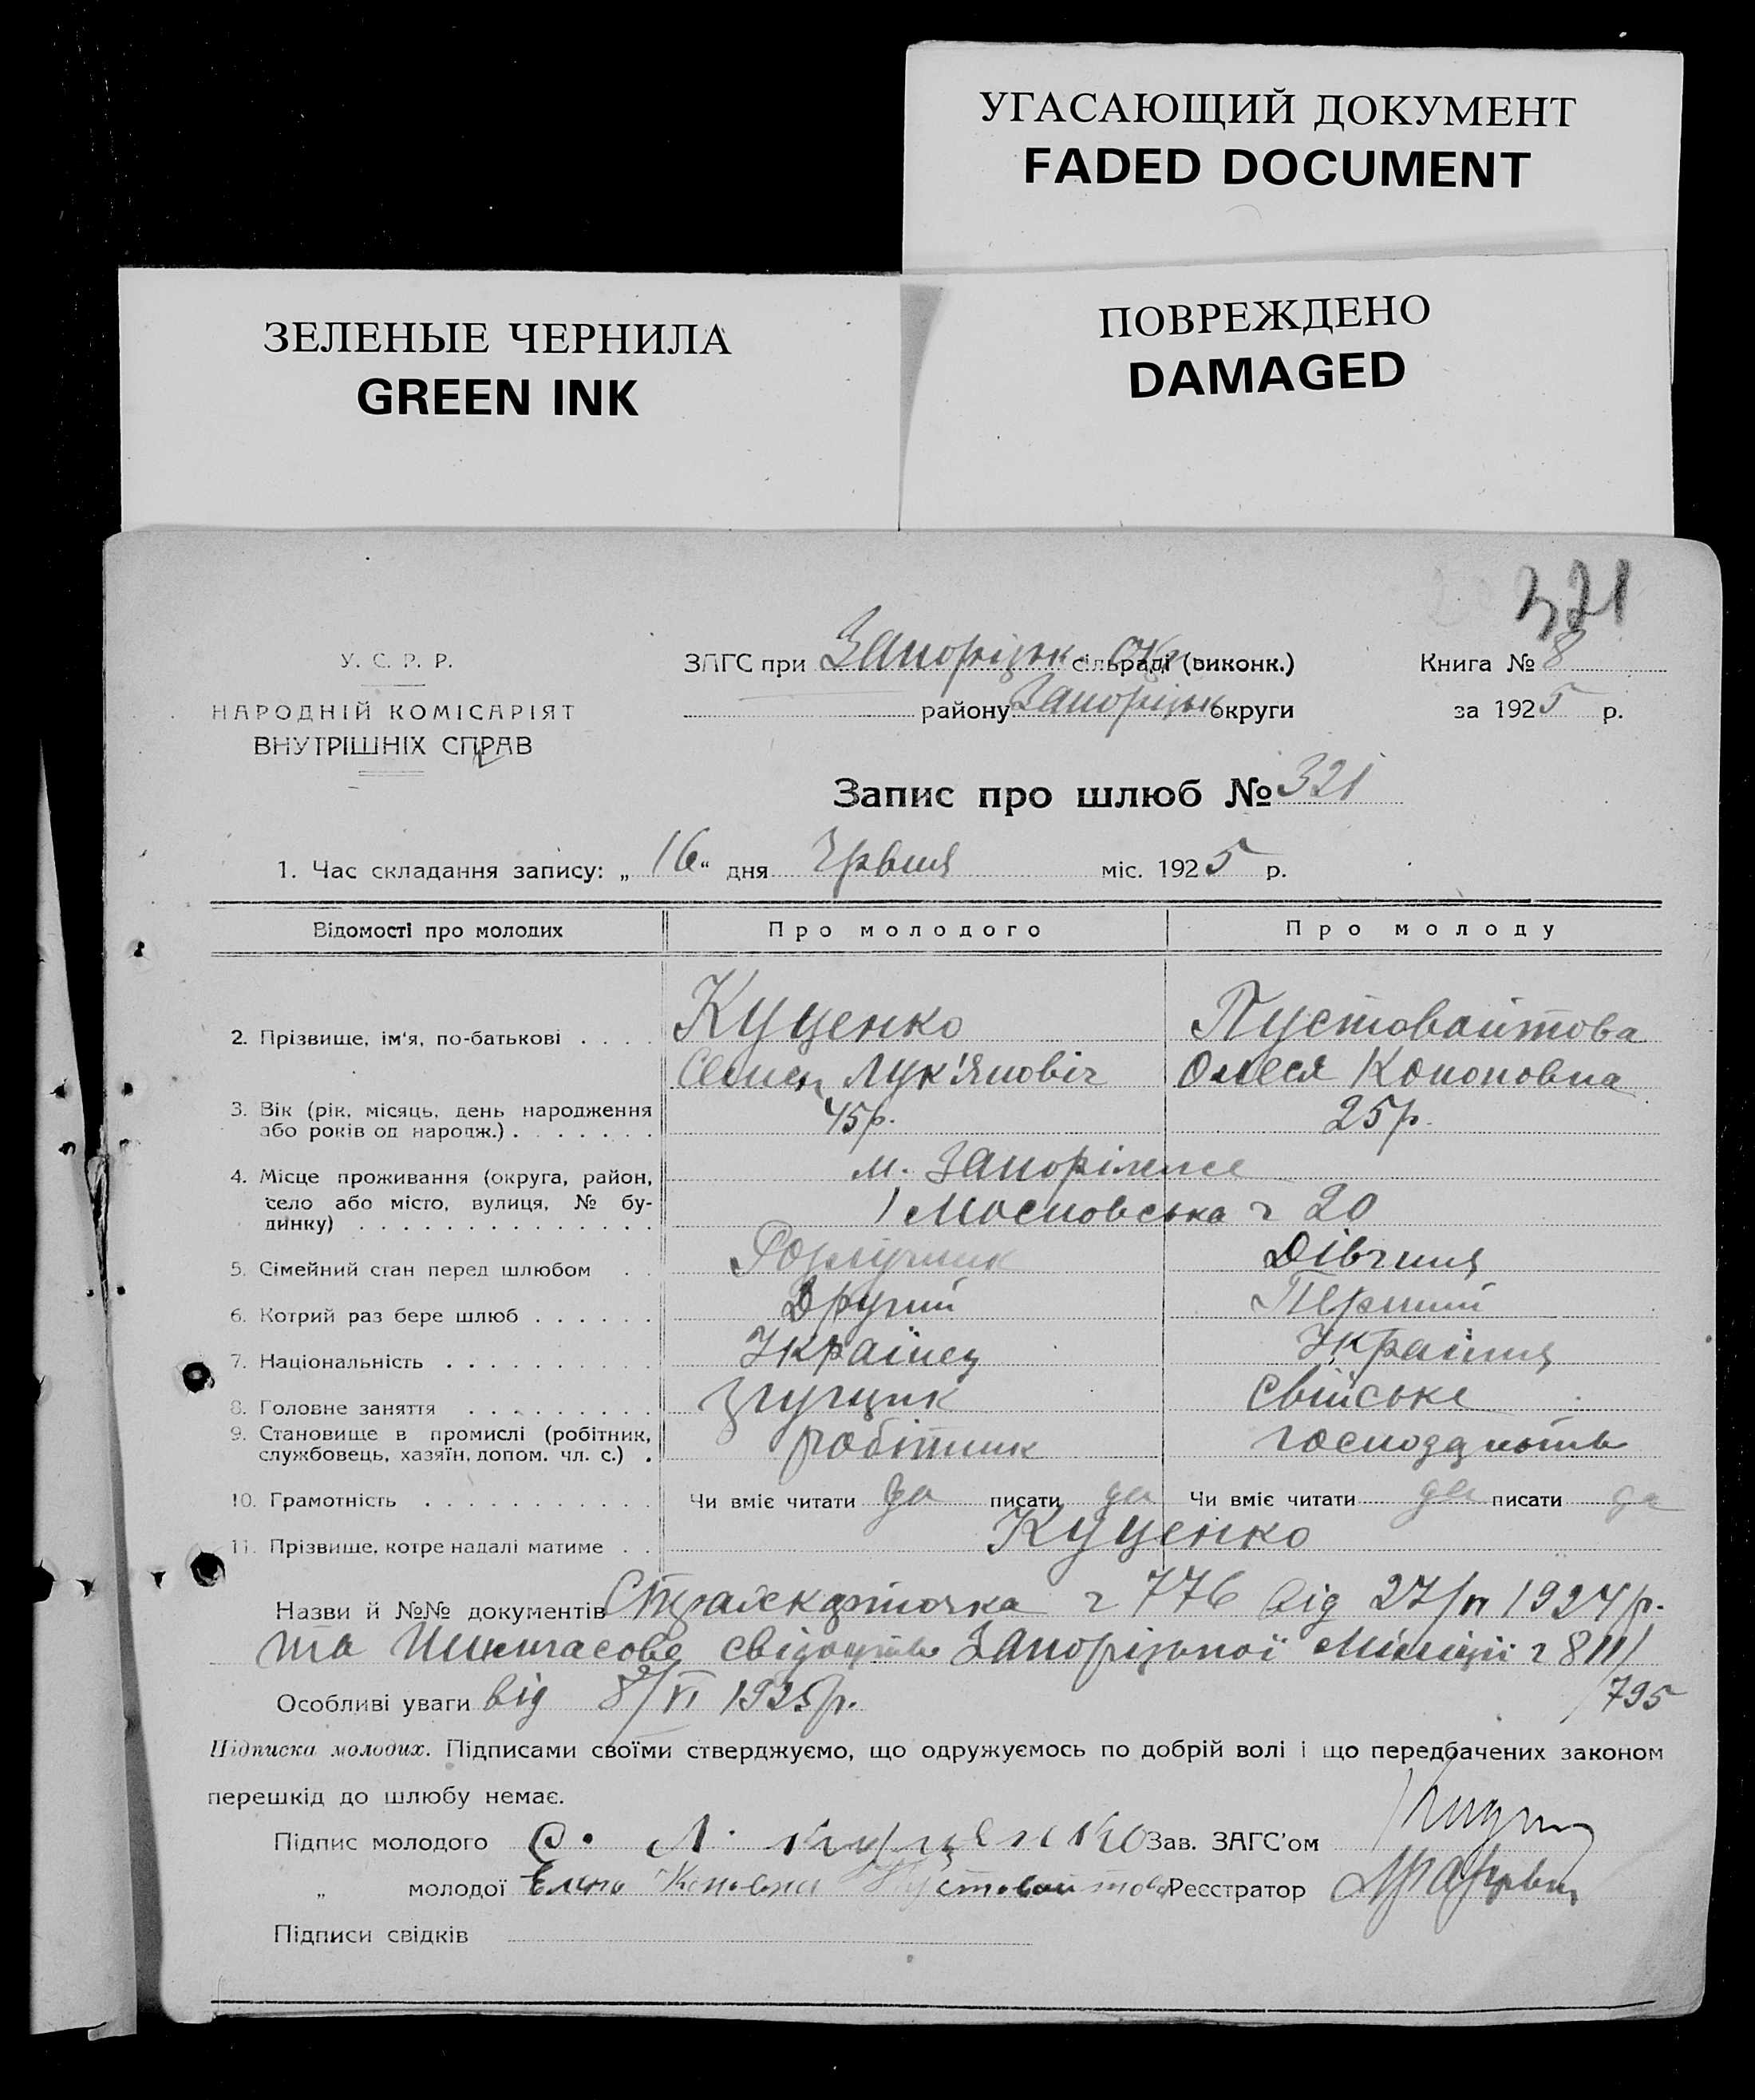 УГАСАЮЩИЙ ДОКУМЕНТ
FADED DOCUMENT
ЗЕЛЕНЫЕ ЧЕРНИЛА
GREEN INK
ПОВРЕЖДЕНО
DAMAGED
321
У. С. Р. Р.
НАРОДНІЙ КОМІСАРІЯТ
ВНУТРІШНІХ СПРАВ
ЗАГС при Запорізьк. Окр. сільраді (виконк.)
району Запорізьк округи
Книга № 8
за 1925 р.
Запис про шлюб № 321
1. Час складання запису: „16“ дня Червня міс. 1925 р.
Відомості про молодих Про молодого Про молоду
2. Прізвище, ім'я, по-батькові . . . . Куценко Пустовайтова
Семен Лук'янович Олеся Кононовна
3. Вік (рік, місяць, день народження
або років од народж.) . . . . . . . 45р. 25р.
4. Місце проживання (округа, район, м. Запоріжже
село або місто, вулиця, № бу-
динку) . . . . . . . . . . . . . . Московська 20
5. Сімейний стан перед шлюбом . . Дівчина
6. Котрий раз бере шлюб . . . . . . Другий Перший
7. Національність . . . . . . . . . . Українец Українця
8. Головне заняття . . . . . . . . . свійське
9. Становище в промислі (робітник,
службовець, хазяїн, допом. чл. с.) . робітник
10. Грамотність . . . . . . . . . . . Чи вміє читати да писати да Чи вміє читати да писати да
11. Прізвище, котре надалі матиме . . Куценко
Назви й №№ документів Страхкарточка ч 776 від 27/VI 1924 р.
та свідоцтво Запорізької Міліції ч 8111/795
Особливі уваги від 8/VI 1925р.
Підписка молодих. Підписами своїми стверджуємо, що одружуємось по добрій волі і що передбачених законом
перешкід до шлюбу немає.
Підпис молодого С. Л. Куценко Зав. ЗАГС'ом
„ молодої Елена Пустовайтова Реєстратор
Підписи свідків